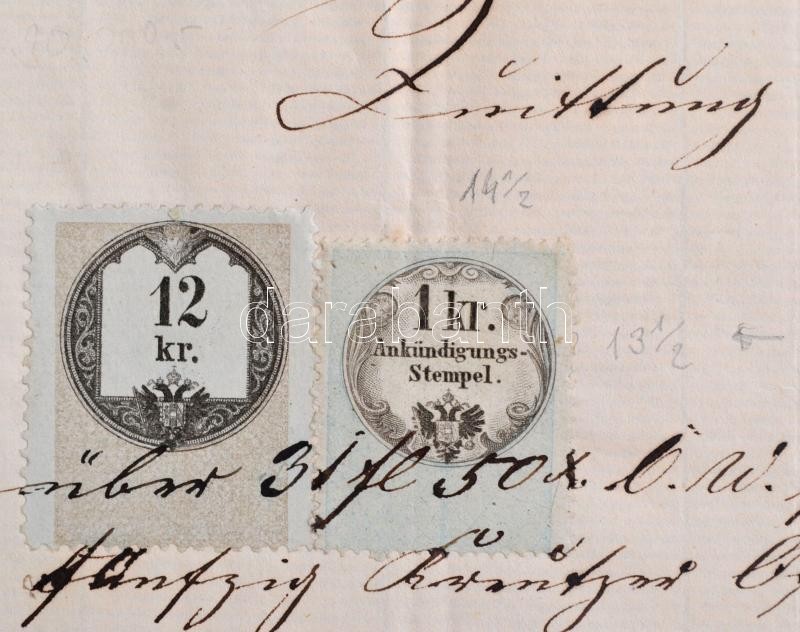 Quittung
14 1/2
12
kr.
1 kr.
Ankündigungs-
Stempel.
darabanth
13 1/2
über 31 fl 50 x. Ö. W.
fünfzig Kreutzer